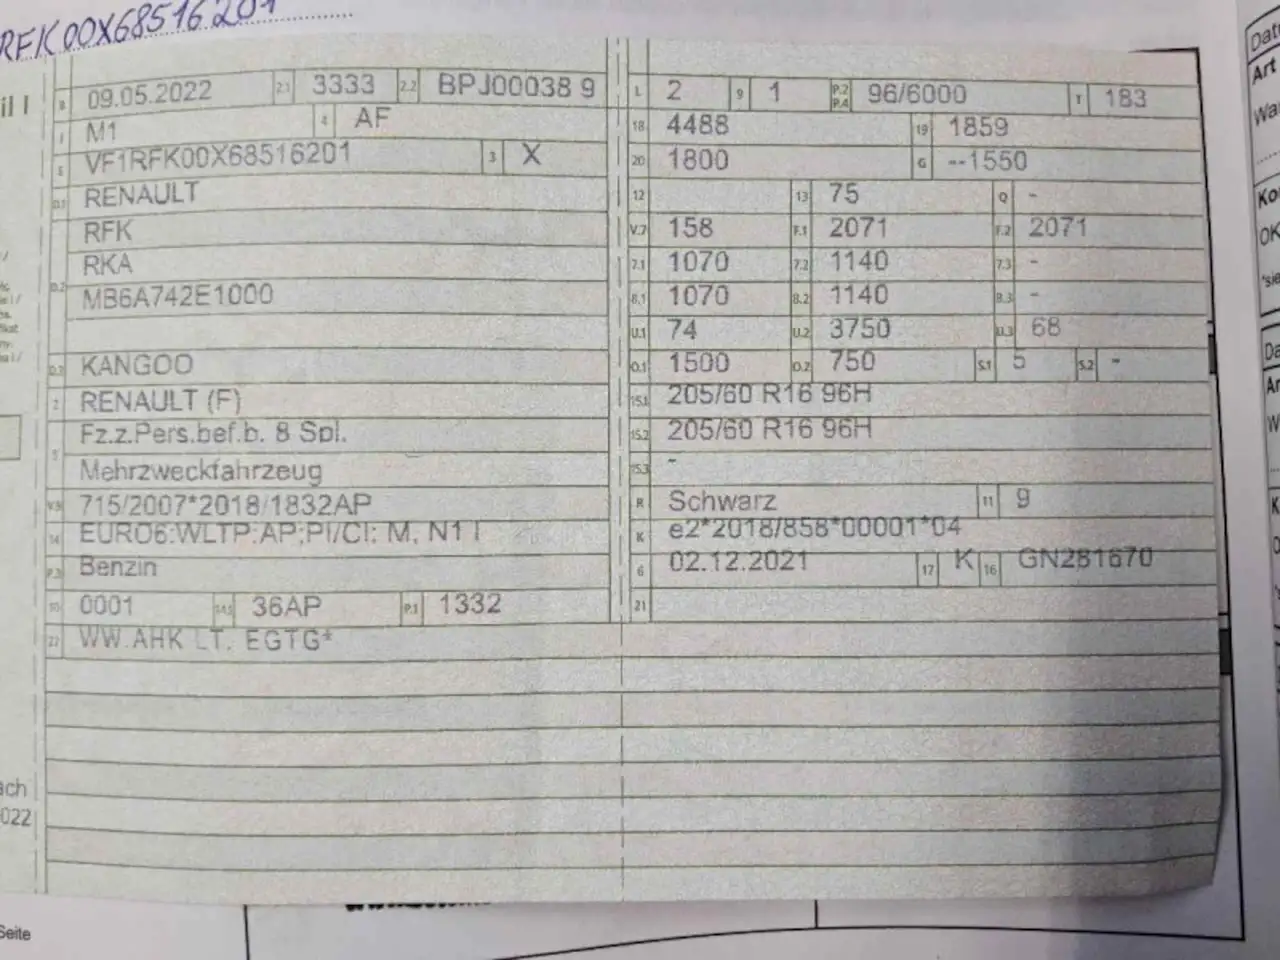 RFK00X68516201
il I
B 09.05.2022 2.1 3333 2.2 BPJ00038 9
J M1 4 AF
E VF1RFK00X68516201 3 X
D.1 RENAULT
RFK
D.2 RKA
MB6A742E1000
D.3 KANGOO
2 RENAULT (F)
5 Fz.z.Pers.bef.b. 8 Spl.
Mehrzweckfahrzeug
V.9 715/2007*2018/1832AP
14 EURO6;WLTP;AP;PI/CI; M, N1 I
P.3 Benzin
10 0001 14.1 36AP P.1 1332
22 WW.AHK LT. EGTG*
L 2 9 1 P.2 P.4 96/6000 T 183
18 4488 19 1859
20 1800 G --1550
12 13 75 Q -
V.7 158 F.1 2071 F.2 2071
7.1 1070 7.2 1140 7.3 -
8.1 1070 8.2 1140 8.3 -
U.1 74 U.2 3750 U.3 68
O.1 1500 O.2 750 S.1 5 S.2 -
15.1 205/60 R16 96H
15.2 205/60 R16 96H
15.3 -
R Schwarz 11 9
K e2*2018/858*00001*04
6 02.12.2021 17 K 16 GN281670
21
ach
022
Seite
Date
Art
Wa
Ko
OK
*sie
Da
Ar
W
K